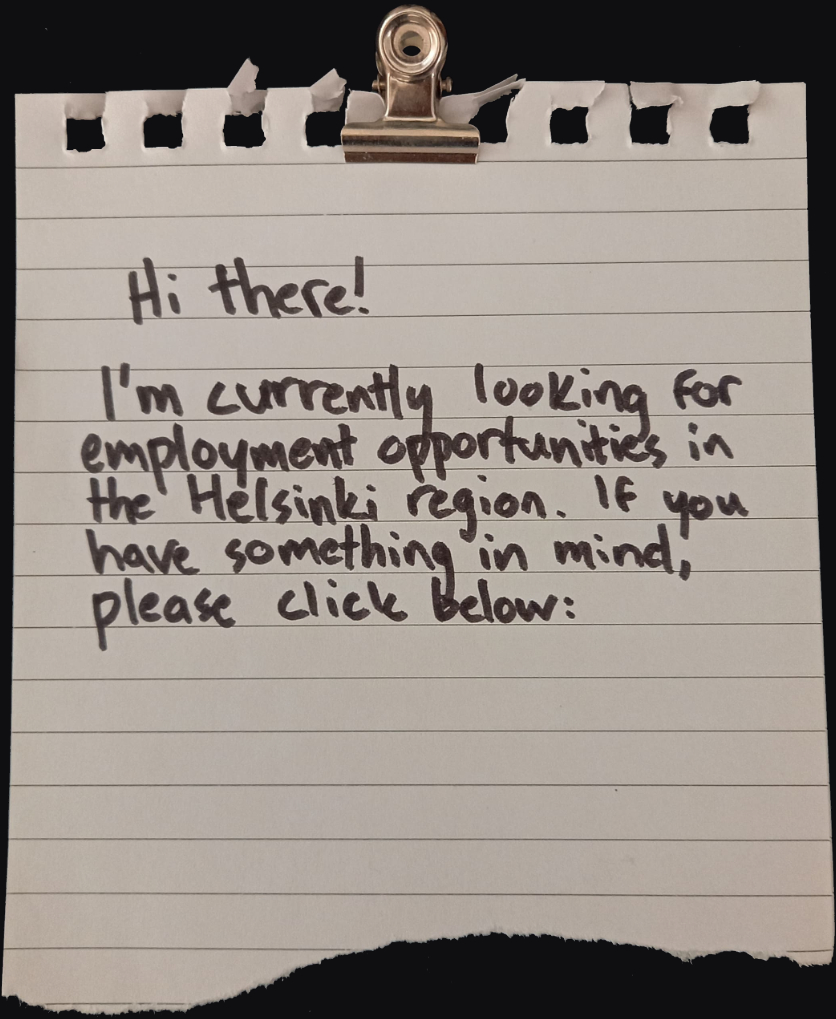 Hi there!
I'm currently looking for
employment opportunities in
the Helsinki region. If you
have something in mind,
please click below: